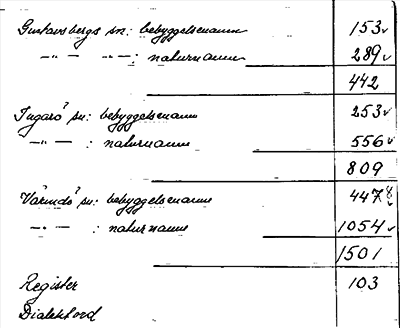 Gustavsbergs sn: bebyggelsenamn 153 ✓
-"- -"-: naturnamn 289 ✓
442
Ingarö sn: bebyggelsenamn 253 ✓
-"- : naturnamn 556 ✓
809
Värmdö sn: bebyggelsenamn 447 8 ✓
-"- : naturnamn 1054 ✓
1501
Register 103
Dialektord